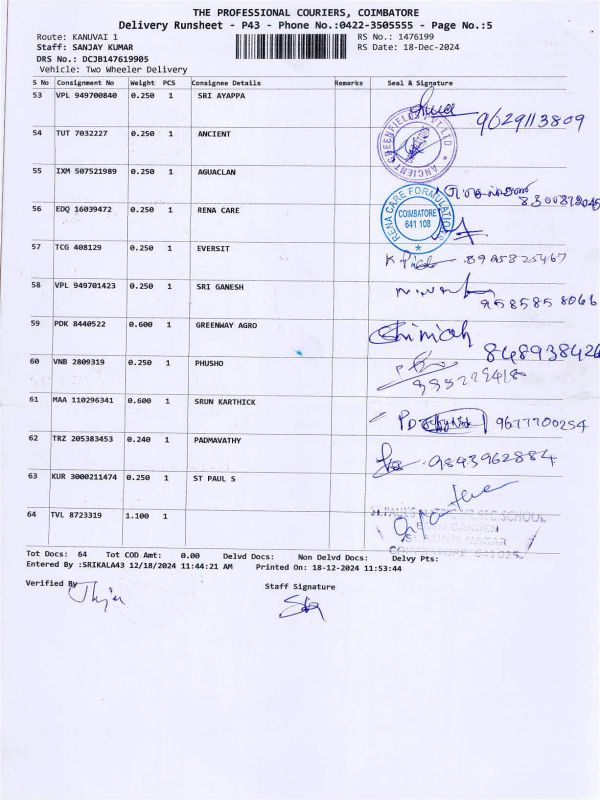 THE PROFESSIONAL COURIERS, COIMBATORE
Delivery Runsheet - P43 - Phone No.:0422-3505555 - Page No.:5
Route: KANUVAI 1 RS No.: 1476199
Staff: SANJAY KUMAR RS Date: 18-Dec-2024
DRS No.: DCJB147619905
Vehicle: Two Wheeler Delivery
S No Consignment No Weight PCS Consignee Details Remarks Seal & Signature
53 VPL 949700840 0.250 1 SRI AYAPPA
9629113809
54 TUT 7032227 0.250 1 ANCIENT
ANCIENT GREENFIELDS PVT LTD
55 IXM 507521989 0.250 1 AGUACLAN
56 EDQ 16039472 0.250 1 RENA CARE
RENA CARE FORMULATIONS
COIMBATORE
641 108
57 TCG 408129 0.250 1 EVERSIT
8995825467
58 VPL 949701423 0.250 1 SRI GANESH
9585858066
59 PDK 8440522 0.600 1 GREENWAY AGRO
848938426
60 VNB 2809319 0.250 1 PHUSHO
61 MAA 110296341 0.600 1 SRUN KARTHICK
9677700254
62 TRZ 205383453 0.240 1 PADMAVATHY
9843962884
63 KUR 3000211474 0.250 1 ST PAUL S
64 TVL 8723319 1.100 1
ST.PAUL'S SEC.SCHOOL
GARDEN
NAGAR
COIMBATORE 641025
Tot Docs: 64 Tot COD Amt: 0.00 Delvd Docs: Non Delvd Docs: Delvy Pts:
Entered By :SRIKALA43 12/18/2024 11:44:21 AM Printed On: 18-12-2024 11:53:44
Verified By Staff Signature